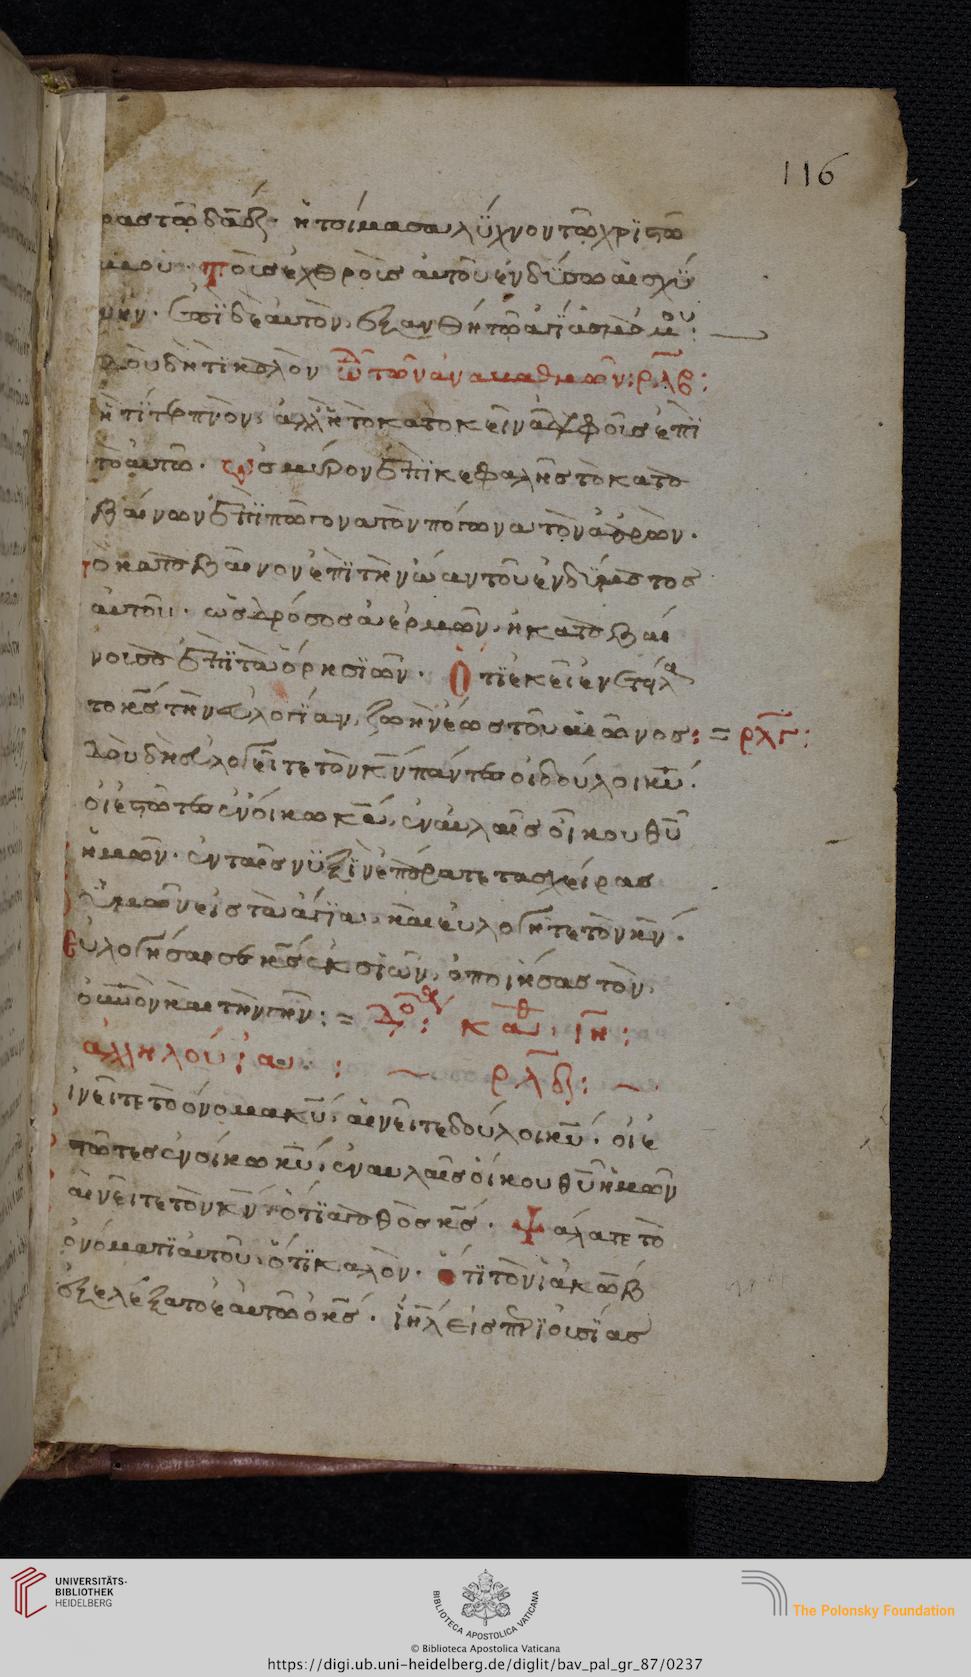 116
ρας τῶ δαδ· ἡτοίμασα λύχνον τῶ χριστῶ
μου· τοὺς ἐχθροὺς αὐτοῦ ἐνδύσω αἰσχύ
νην· ἐπὶ δὲ αὐτὸν ἐξανθήσει τὸ ἁγίασμά μου:
Ἰδοὺ δὴ τί καλὸν ὠδὴ τῶν ἀναβαθμῶν: ρλβ:
ἢ τί τερπνὸν ἀλλ' ἢ τὸ κατοικεῖν ἀδελφοὺς ἐπὶ
τὸ αὐτὸ· ὡς μύρον ἐπὶ κεφαλῆς τὸ κατα
βαίνων ἐπὶ πώγονα τὸν πόγωνα τὸν ἀαρών·
τὸ καταβαῖνον ἐπὶ τὴν ὤαν τοῦ ἐνδύματος
αὐτοῦ· ὡς δρόσος ἀερμῶν ἡ καταβαί
νουσα ἐπὶ τὰ ὄρη σιών· Ὅτι ἐκεῖ ἐνετείλα
το κς τὴν εὐλογίαν, ζωὴν ἕως τοῦ αἰῶνος: = ρλγ:
Ἰδοὺ δὴ εὐλογεῖτε τὸν κν πάντες οἱ δοῦλοι κυ·
οἱ ἑστῶτες ἐν οἴκω κυ, ἐν αὐλαῖς οἴκου θυ
ἡμῶν· ἐν ταῖς νυξὶν ἐπάρατε τὰς χεῖρας
ὑμῶν εἰς τὰ ἅγια, καὶ εὐλογῆτε τὸν κν·
Εὐλογήσαι σε κς ἐκ σιών, ὁ ποιήσας τὸν
οὐνον καὶ τὴν γῆν: = Δοξ: καθ ιη:
ἀλληλούια: ρλδ:
ἰνεῖτε τὸ ὄνομα κυ, αἰνεῖτε δοῦλοι κυ· οἱ ἑ
στῶτες ἐν οἴκω κυ, ἐν αὐλαῖς οἴκου θυ ἡμῶν
αἰνεῖτε τὸν κν ὅτι ἀγαθὸς κς· Ψάλατε τὸ
ὀνόματι αὐτοῦ ὅτι καλὸν· ὅτι τὸν ἰακὼβ
ἐξελέξατο ἑαυτῶ ὁ κς· ἰηλ εἰς περιουσίας
UNIVERSITÄTS-
BIBLIOTHEK
HEIDELBERG
BIBLIOTECA APOSTOLICA VATICANA
© Biblioteca Apostolica Vaticana
The Polonsky Foundation
https://digi.ub.uni-heidelberg.de/diglit/bav_pal_gr_87/0237